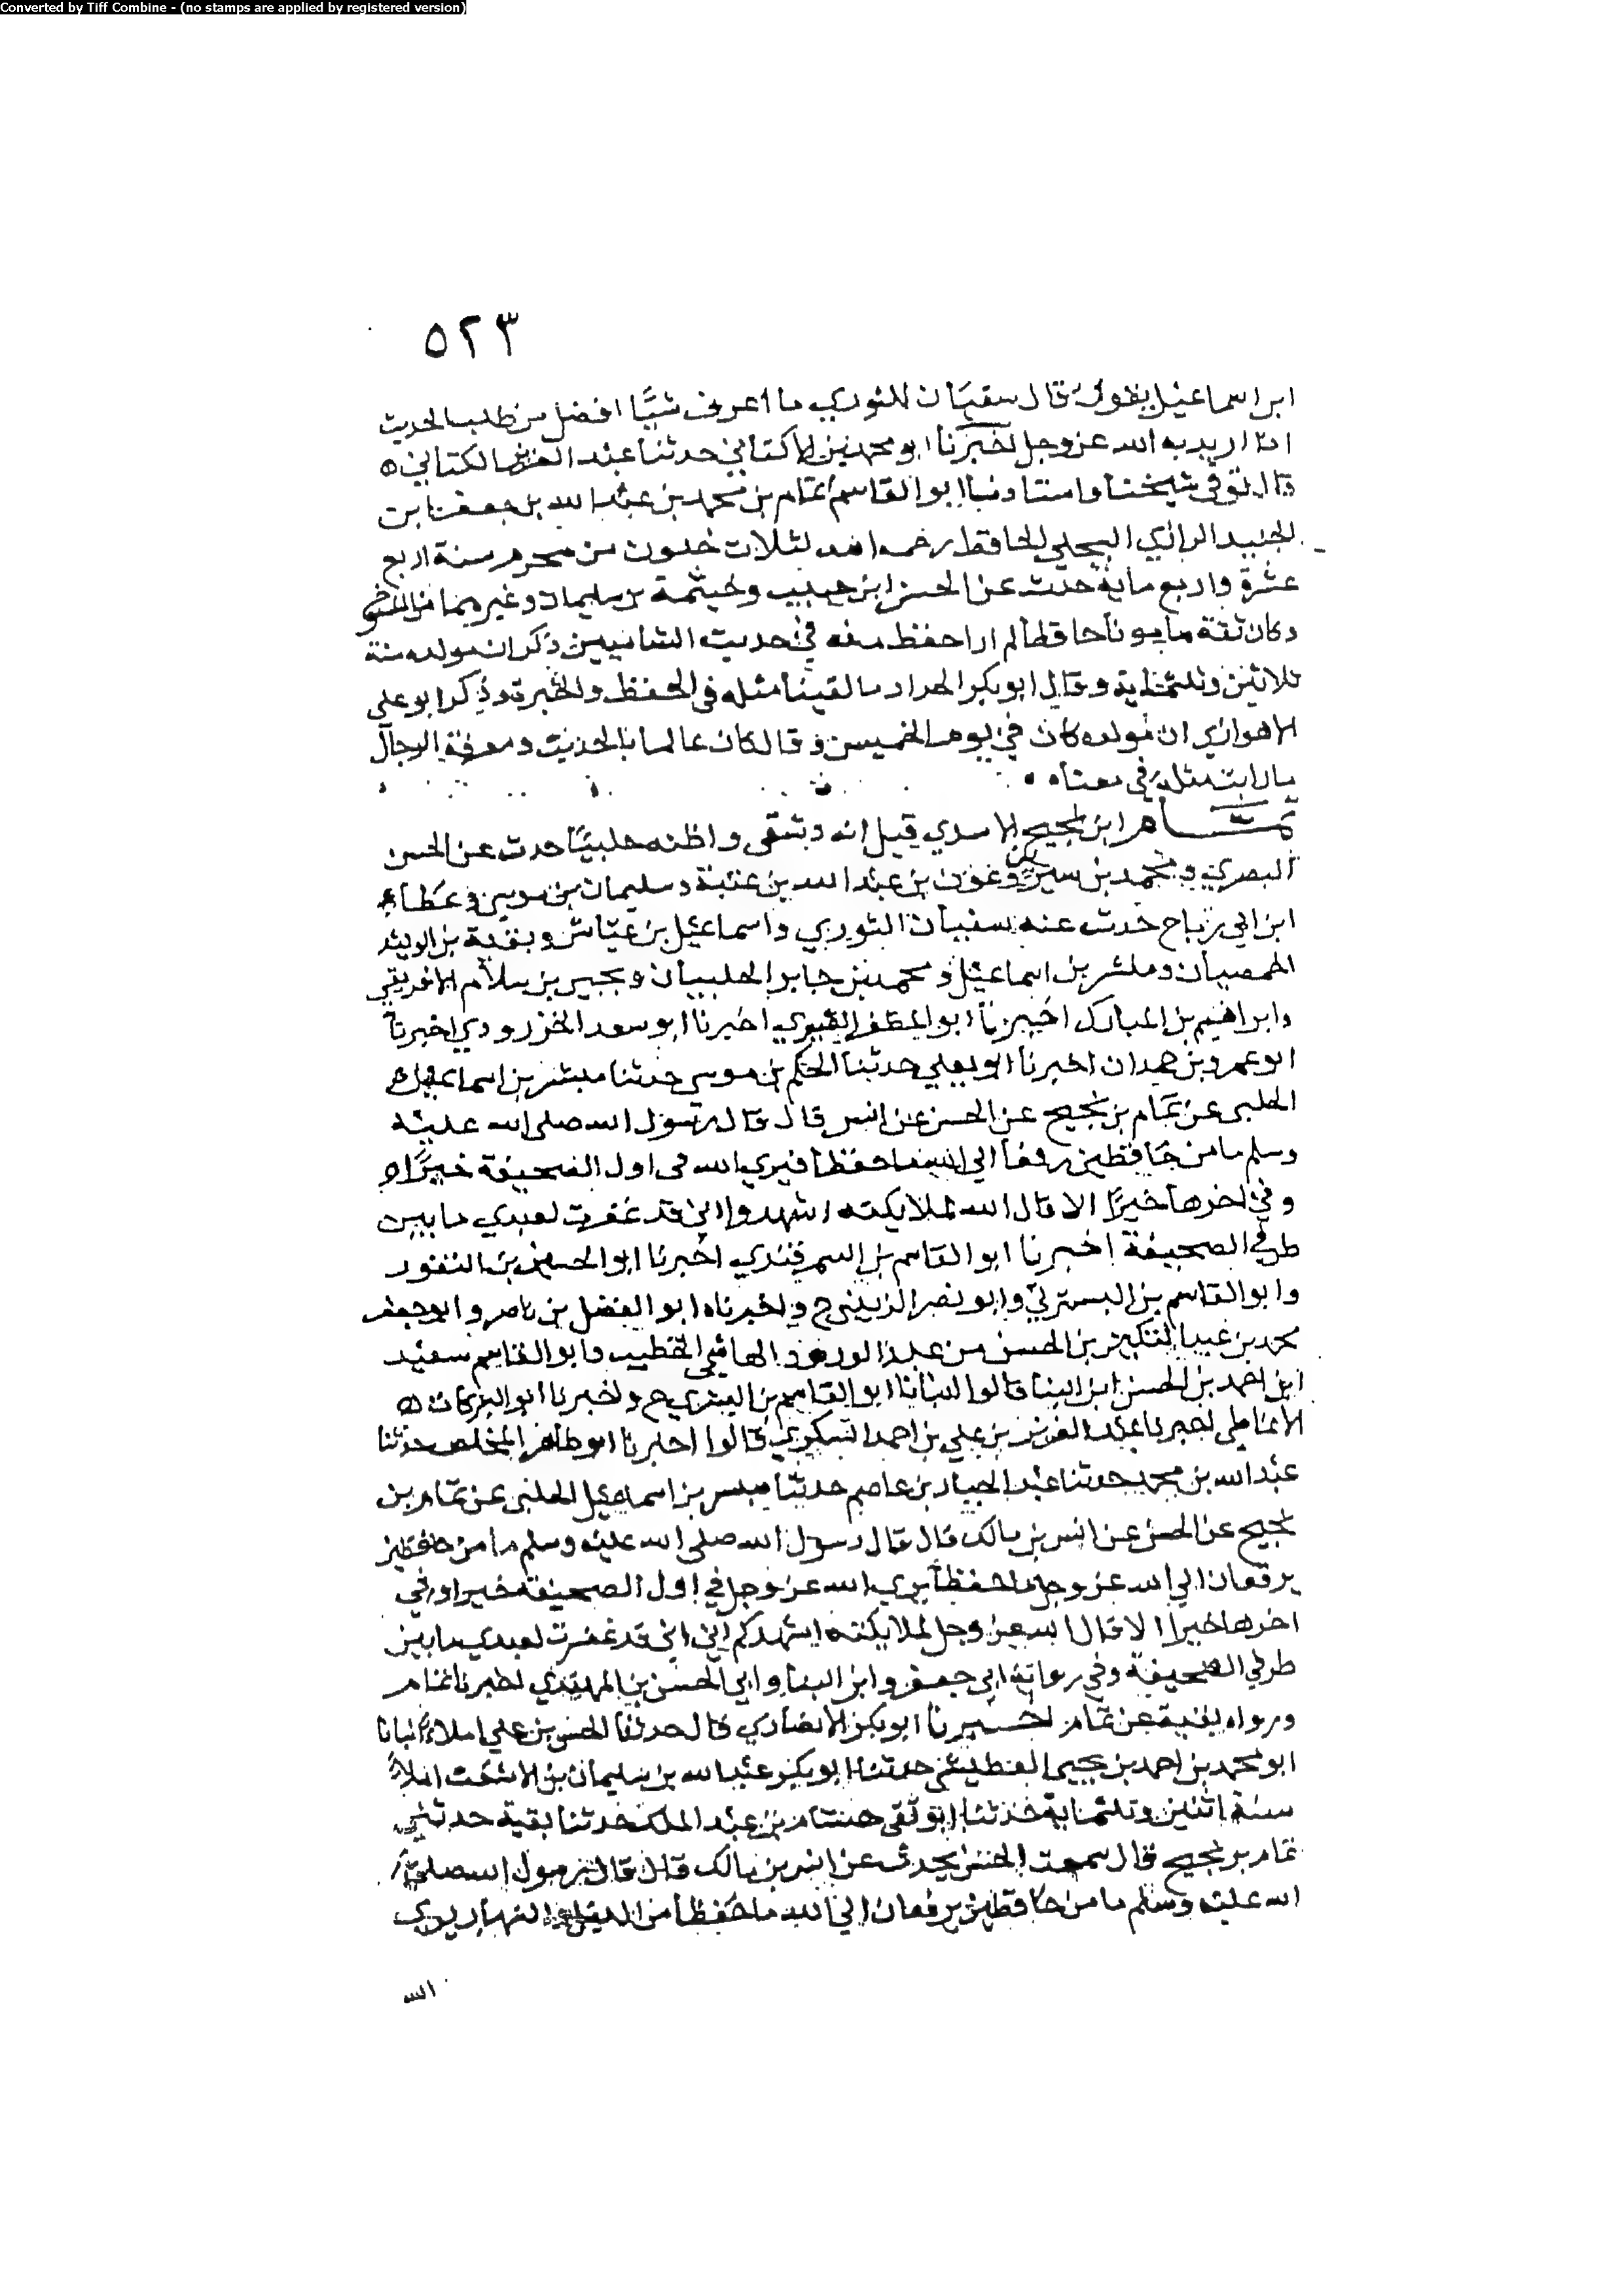 Converted by Tiff Combine - (no stamps are applied by registered version)
٥٢٣
ابن اسماعيل يقول قال سفيان الثوري ما اعرف شيئا افضل من طلب الحديث
اذا اريد به الله عز وجل اخبرنا ابو محمد بن الاكفاني حدثنا عبد العزيز الكتاني ٥
قال توفي شيخنا واستاذنا ابو القاسم تمام بن محمد بن عبد الله بن جعفر بن
الجنيد الرازي البجلي الحافظ رحمه الله لثلاث خلون من محرم سنة اربع
عشرة واربع ماية حدث عن الحسن ابن حبيب وخيثمة بن سليمان وغيرهما من الشيوخ
وكان ثقة مامونا حافظا لم ار احفظ منه في حديث الشاميين ذكر ان مولده سنة
ثلاثين وثلثماية وقال ابو بكر الحداد ما لقينا مثله في الحفظ والخبرة وذكر ابو علي
الاهوازي ان مولده كان في يوم الخميس وقال كان عالما بالحديث ومعرفة الرجال
ما رايت مثله في معناه
تمام ابن نجيح الاسدي قيل انه دمشقي واظنه حلبيا حدث عن الحسن
البصري ومحمد بن سيرين وعون بن عبد الله بن عتبة وسليمان بن موسى وعطاء
ابن ابي رباح حدث عنه سفيان الثوري واسماعيل بن عياش وبقية بن الوليد
الحمصيان ومبشر بن اسماعيل ومحمد بن جابر الحلبيان ويحيى بن سلام الافريقي
وابراهيم بن المبارك اخبرنا ابو المظفر القشيري اخبرنا ابو سعد الجنزرودي اخبرنا
ابو عمرو بن حمدان اخبرنا ابو يعلي حدثنا الحكم بن موسى حدثنا مبشر بن اسماعيل
الحلبي عن تمام بن نجيح عن الحسن عن انس قال قال رسول الله صلى الله عليه
وسلم ما من حافظين رفعا الي الله ما حفظا فيري الله في اول الصحيفة خيرا
وفي اخرها خيرا الا قال الله لملايكته اشهدوا اني قد غفرت لعبدي ما بين
طرفي الصحيفة اخبرنا ابو القاسم بن السمرقندي اخبرنا ابو الحسين بن النقور
وابو القاسم بن البسري وابو نصر الزينبي ح واخبرناه ابو الفضل بن ناصر وابو جعفر
محمد بن عبد المتكبر بن الحسن بن عبد الودود الهاشمي الخطيب وابو القاسم سعيد
ابن احمد بن الحسن ابن البنا قالوا انبانا ابو القاسم بن البسري ح واخبرنا ابو البركات ٥
الانماطي اخبرنا عبد العزيز بن علي بن احمد السكري قالوا اخبرنا ابو طاهر المخلص حدثنا
عبد الله بن محمد حدثنا عبد الجبار بن عاصم حدثنا مبشر بن اسماعيل الحلبي عن تمام بن
نجيح عن الحسن عن انس بن مالك قال قال رسول الله صلى الله عليه وسلم ما من حافظين
يرفعان الي الله عز وجل ما حفظا يري الله عز وجل في اول الصحيفة خيرا وفي
اخرها خيرا الا قال الله عز وجل لملايكته اشهدكم اني قد غفرت لعبدي ما بين
طرفي الصحيفة وفي رواية ابي جعفر وابن البنا وابي الحسن بن المهتدي اخبرنا تمام
ورواه بقية عن تمام اخبرنا ابو بكر الانصاري قال حدثنا الحسن بن علي املاء انبانا
ابو محمد بن احمد بن يحيى العطشي حدثنا ابو بكر عبد الله بن سليمان بن الاشعث املاء
سنة اثنين وثلثماية حدثنا ابو تقي هشام بن عبد الملك حدثنا بقية حدثني
تمام بن نجيح قال سمعت الحسن يحدث عن انس بن مالك قال قال رسول الله صلى
الله عليه وسلم ما من حافظين يرفعان الي الله ما حفظا من الليل والنهار يري
الله